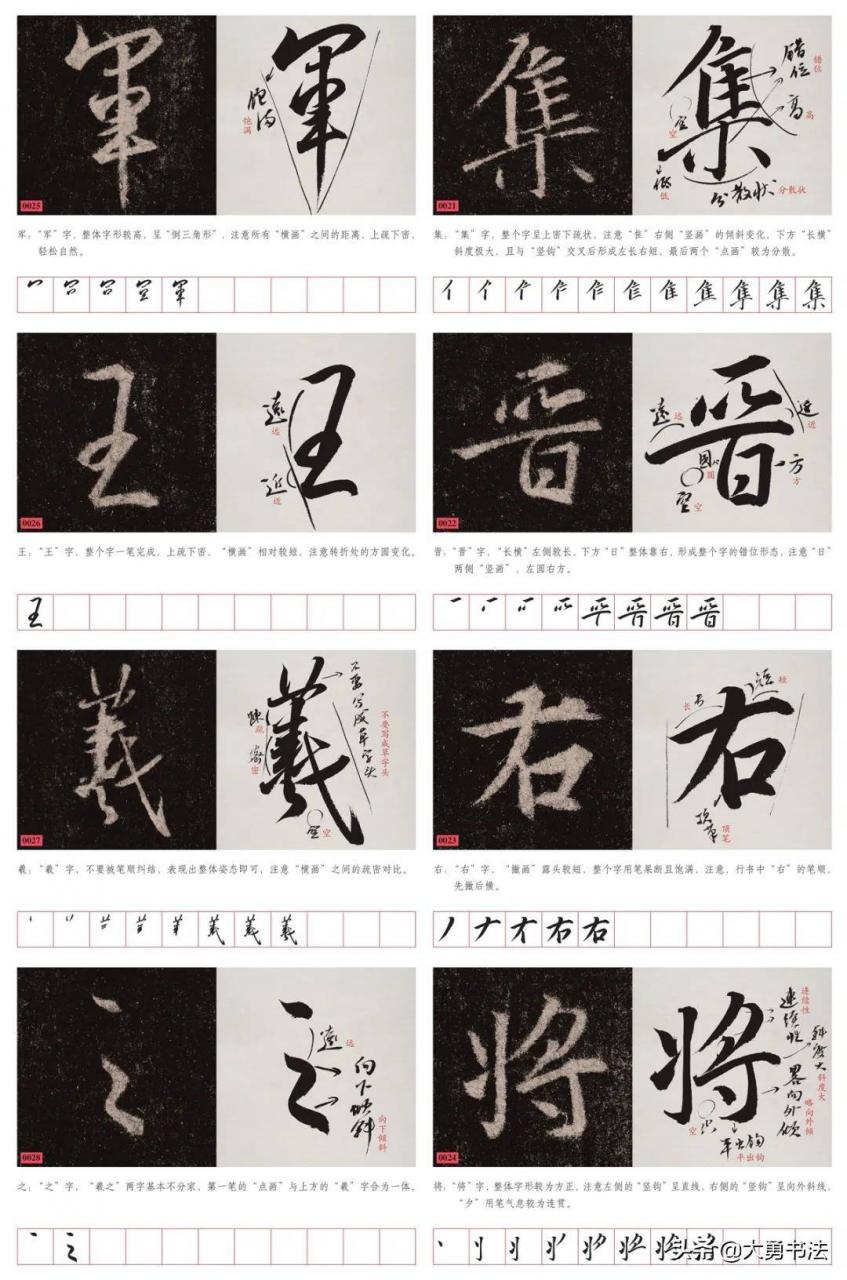 集
集
错位
错位
高
高
空
空
低
低
分散状
分散状
0021
集：“集”字，整个字呈上密下疏状，注意“隹”右侧“竖画”的倾斜变化，下方“长横”
斜度极大，且与“竖钩”交叉后形成左长右短，最后两个“点画”较为分散。
晋
晋
遠
远
近
近
圆
圆
方
方
空
空
0022
晋：“晋”字，“长横”左侧较长，下方“日”整体靠右，形成整个字的错位形态，注意“日”
两侧“竖画”，左圆右方。
右
右
长
长
短
短
顶笔
顶笔
0023
右：“右”字，“撇画”露头较短，整个字用笔果断且饱满，注意，行书中“右”的笔顺，
先撇后横。
将
将
连续性
連續性
斜度大
斜度大
略向外倾
畧向外倾
空
空
平出钩
平出钩
0024
将：“将”字，整体字形较为方正，注意左侧的“竖钩”呈直线，右侧的“竖钩”呈向外斜线，
“夕”用笔气息较为连贯。
軍
軍
饱满
饱满
0025
军：“军”字，整体字形较高，呈“倒三角形”，注意所有“横画”之间的距离，上疏下密，
轻松自然。
王
王
遠
远
近
近
0026
王：“王”字，整个字一笔完成，上疏下密，“横画”相对较短，注意转折处的方圆变化。
羲
羲
不要写成草字头
不要写成草字头
疎
疏
密
密
空
空
0027
羲：“羲”字，不要被笔顺纠结，表现出整体姿态即可，注意“横画”之间的疏密对比。
之
之
遠
远
向下倾斜
向下倾斜
0028
之：“之”字，“羲之”两字基本不分家，第一笔的“点画”与上方的“羲”字合为一体。
头条@大勇书法